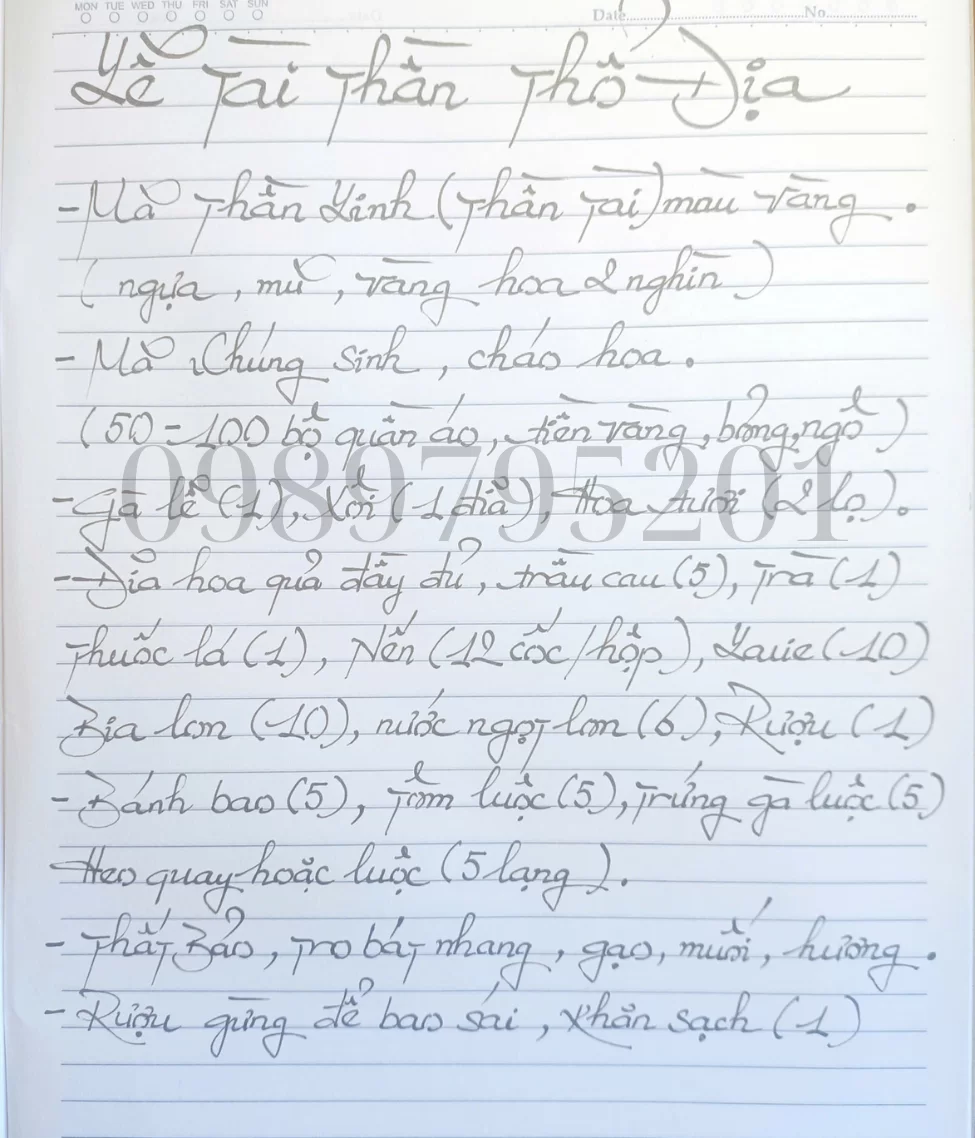 MON TUE WED THU FRI SAT SUN
Date No
Lễ Tài Thần Thổ Địa
- Mã Thần Linh (Thần Tài) màu vàng.
(ngựa, mũ, vàng hoa 2 nghìn)
- Mã Chúng Sinh, cháo hoa.
(50 - 100 bộ quần áo, tiền vàng, bỏng, ngô)
0989795201
- Gà lễ (1), Xôi (1 đĩa), Hoa tươi (2 lọ).
- Đĩa hoa quả đầy đủ, trầu cau (5), Trà (1)
Thuốc lá (1), Nến (12 cốc/hộp), Lavie (10)
Bia lon (10), nước ngọt lon (6), Rượu (1)
- Bánh bao (5), Tôm luộc (5), Trứng gà luộc (5)
Heo quay hoặc luộc (5 lạng).
- Thất Bảo, Tro bát nhang, gạo, muối, hương.
- Rượu gừng để bao sái, Khăn sạch (1)